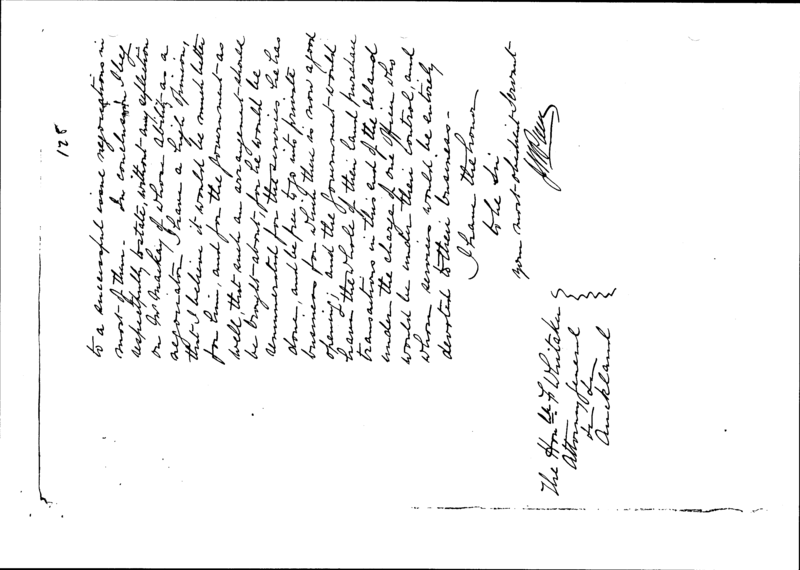 128
to a successful issue negociations in
most of them. In conclusion I beg
respectfully to state, without any reflection
on Mr Mackay of whose ability as a
negociator I have a high opinion,
that I believe it would be much better
for him, and for the Government as
well, that such an arrangement should
be brought about, for he would be
remunerated for the services he has
done, and be free to go into private
business for which there is now a good
opening; and the Government would
have the whole of their land purchase
transactions in this end of the island
under the charge of one officer who
would be under their control, and
whose services would be entirely
devoted to their business.
I have the honor
to be Sir
your most obedient Servant
The Honble F Whitaker
Attorney General
Auckland